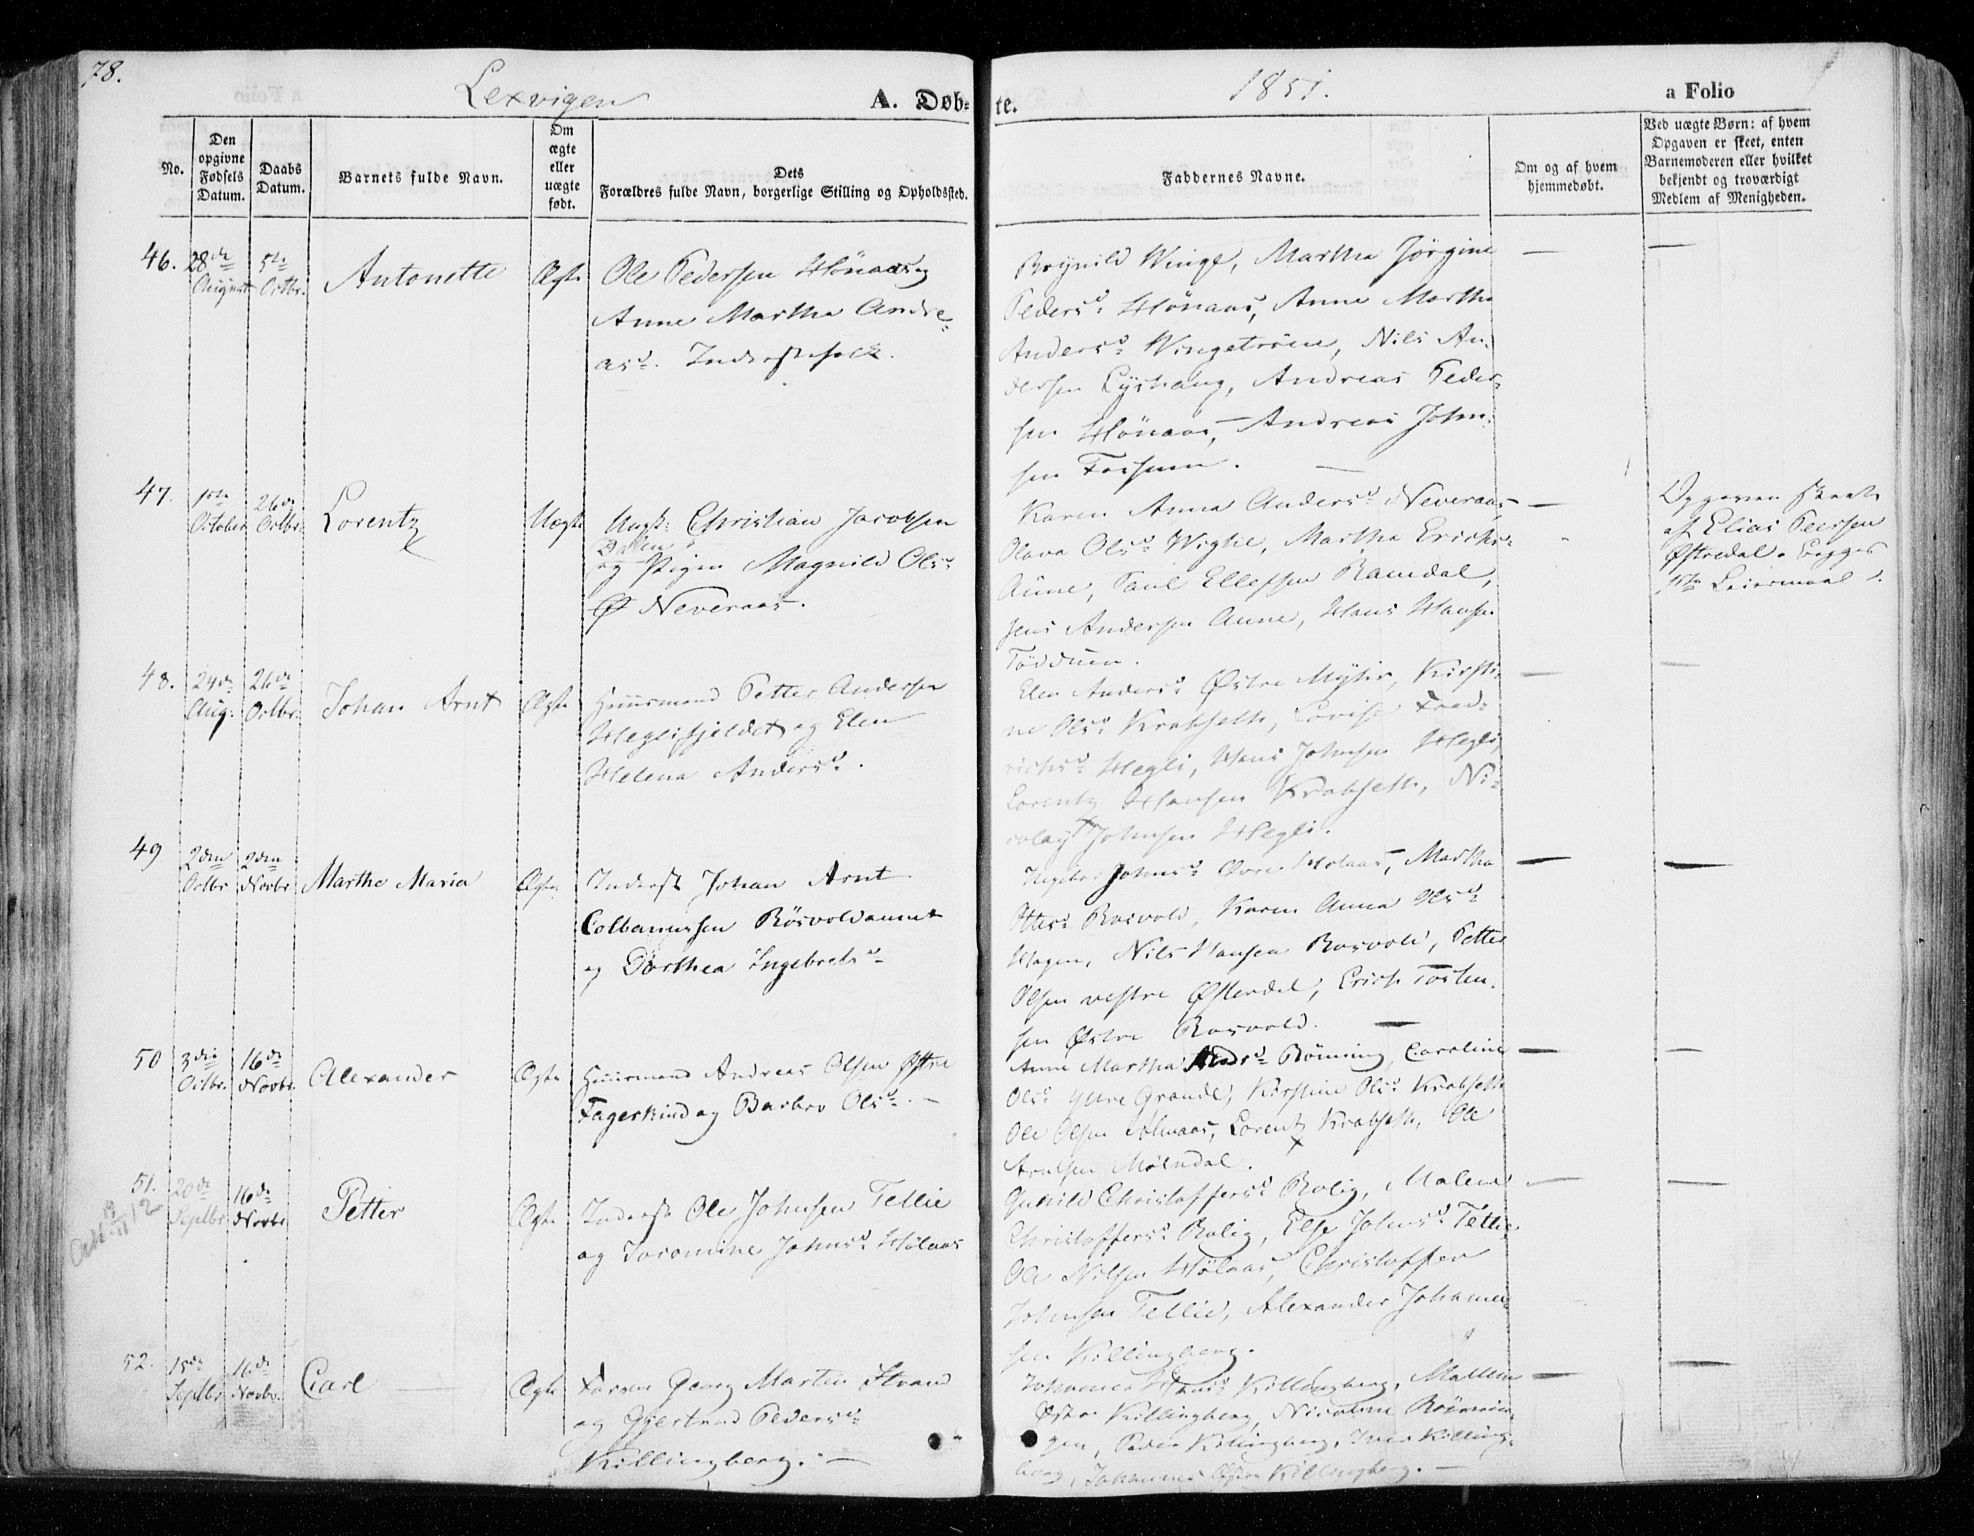 78.
Lexvigen
A. Døb-
te.
1851.
a Folio
No.
Den opgivne Fødsels Datum.
Daabs Datum.
Barnets fulde Navn.
Om ægte eller uægte født.
Dets
Forældres fulde Navn, borgerlige Stilling og Opholdssted.
Faddernes Navne.
Om og af hvem hjemmedøbt.
Ved uægte Børn: af hvem
Opgaven er skeet, enten
Barnemoderen eller hvilket
bekjendt og troværdigt
Medlem af Menigheden.
46. 28de August 5te Octbr. Antonette Ægte
Ole Pedersen Hönaas og
Anne Martha Andre-
asd. Inderstfolk.
Brynild Winge, Martha Jörgine
Pedersd Hönaas, Anne Martha
Andersd Wingetröen, Nils An-
dersen Lyshaug, Andreas Peder-
sen Hönaas, Andreas John-
sen Forsum.
47. 1ste October 26de Octbr. Lorentz Uægte
Ungk: Christian Jacobsen
Dalen
og Pigen Magnild Olsd
Ø Neveraas.
Karen Anna Andersd Neveraas,
Olava Olsd Wigke, Martha Erichsd
Aune, Paul Ellefsen Ramdal,
Jens Andersen Aune, Hans Hansen
Tödduen.
Opgaven skeet
af Elias Peersen
Østredal. Begges
1ste Leiermaal.
48. 24de Aug: 26de Octbr. Johan Arnt Ægte
Huusmand Petter Andersen
Heglisfjeldet og Elen
Helena Andersd.
Elen Andersd Østre Myhr, Kirsti-
ne Olsd Krabseth, Lovise Fred-
richsd Hegli, Hans Johnsen Hegli,
Lorentz Hansen Krabseth, Ni-
colay Johnsen Hegli.
49 2den Octbr 2den Novbr Martha Maria Ægte
Inderst Johan Arnt
Colbanussen Rösvoldaunet
og Dorthea Ingebretsd
Ingebor Johnsd Övre Holaas, Martha
Ottersd Rosvold, Karen Anna Olsd
Hagen, Nils Hansen Rosvold, Petter
Olsen vestre Østerdal, Erich Tosten-
sen Østre Rosvold.
50 3die Octbr. 16de Novbr. Alexander Ægte
Huusmand Andreas Olsen Østre
Fagerskind og Barbro Olsd. —
Anne Martha Andsd Rönning, Caroline
Olsd Yttre Grande, Kirstine Olsd Krabseth
Ole Olsen Holaas, Lorentz Krabseth, Ole
Arntsen Mölndal.
51. 20de Septbr 16de Novbr Petter Ægte
Inderst Ole Johnsen Tellie
og Joromine Johnsd Hölaas
Gunild Christoffersd Rolig, Malena
Christoffersd Rolig, Else Johnsd Tellie,
Ole Nilsen Hölaas, Christoffer
Johnsen Tellie, Alexander Johanne-
sen Killingberg.
52. 15de Septbr 16de Novbr. Carl Ægte
Farver Georg Martin Strand
og Gjertrud Pedersd
Killingberg. —
Johanna Hansd Killingberg, Mallena
Østre Killingberg, Nicoline Rönnin-
gen, Peder Killingberg, Iver Killing-
berg, Johannes Østre Killingberg. —